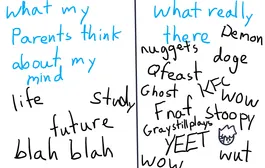 what my
Parents think
about my
mind
life study
future
blah blah
what really
there
Demon
nuggets
doge
a feast
Ghost
KFC
wow
Fnaf
stoopy
Graystillplays
YEET
wut
wow